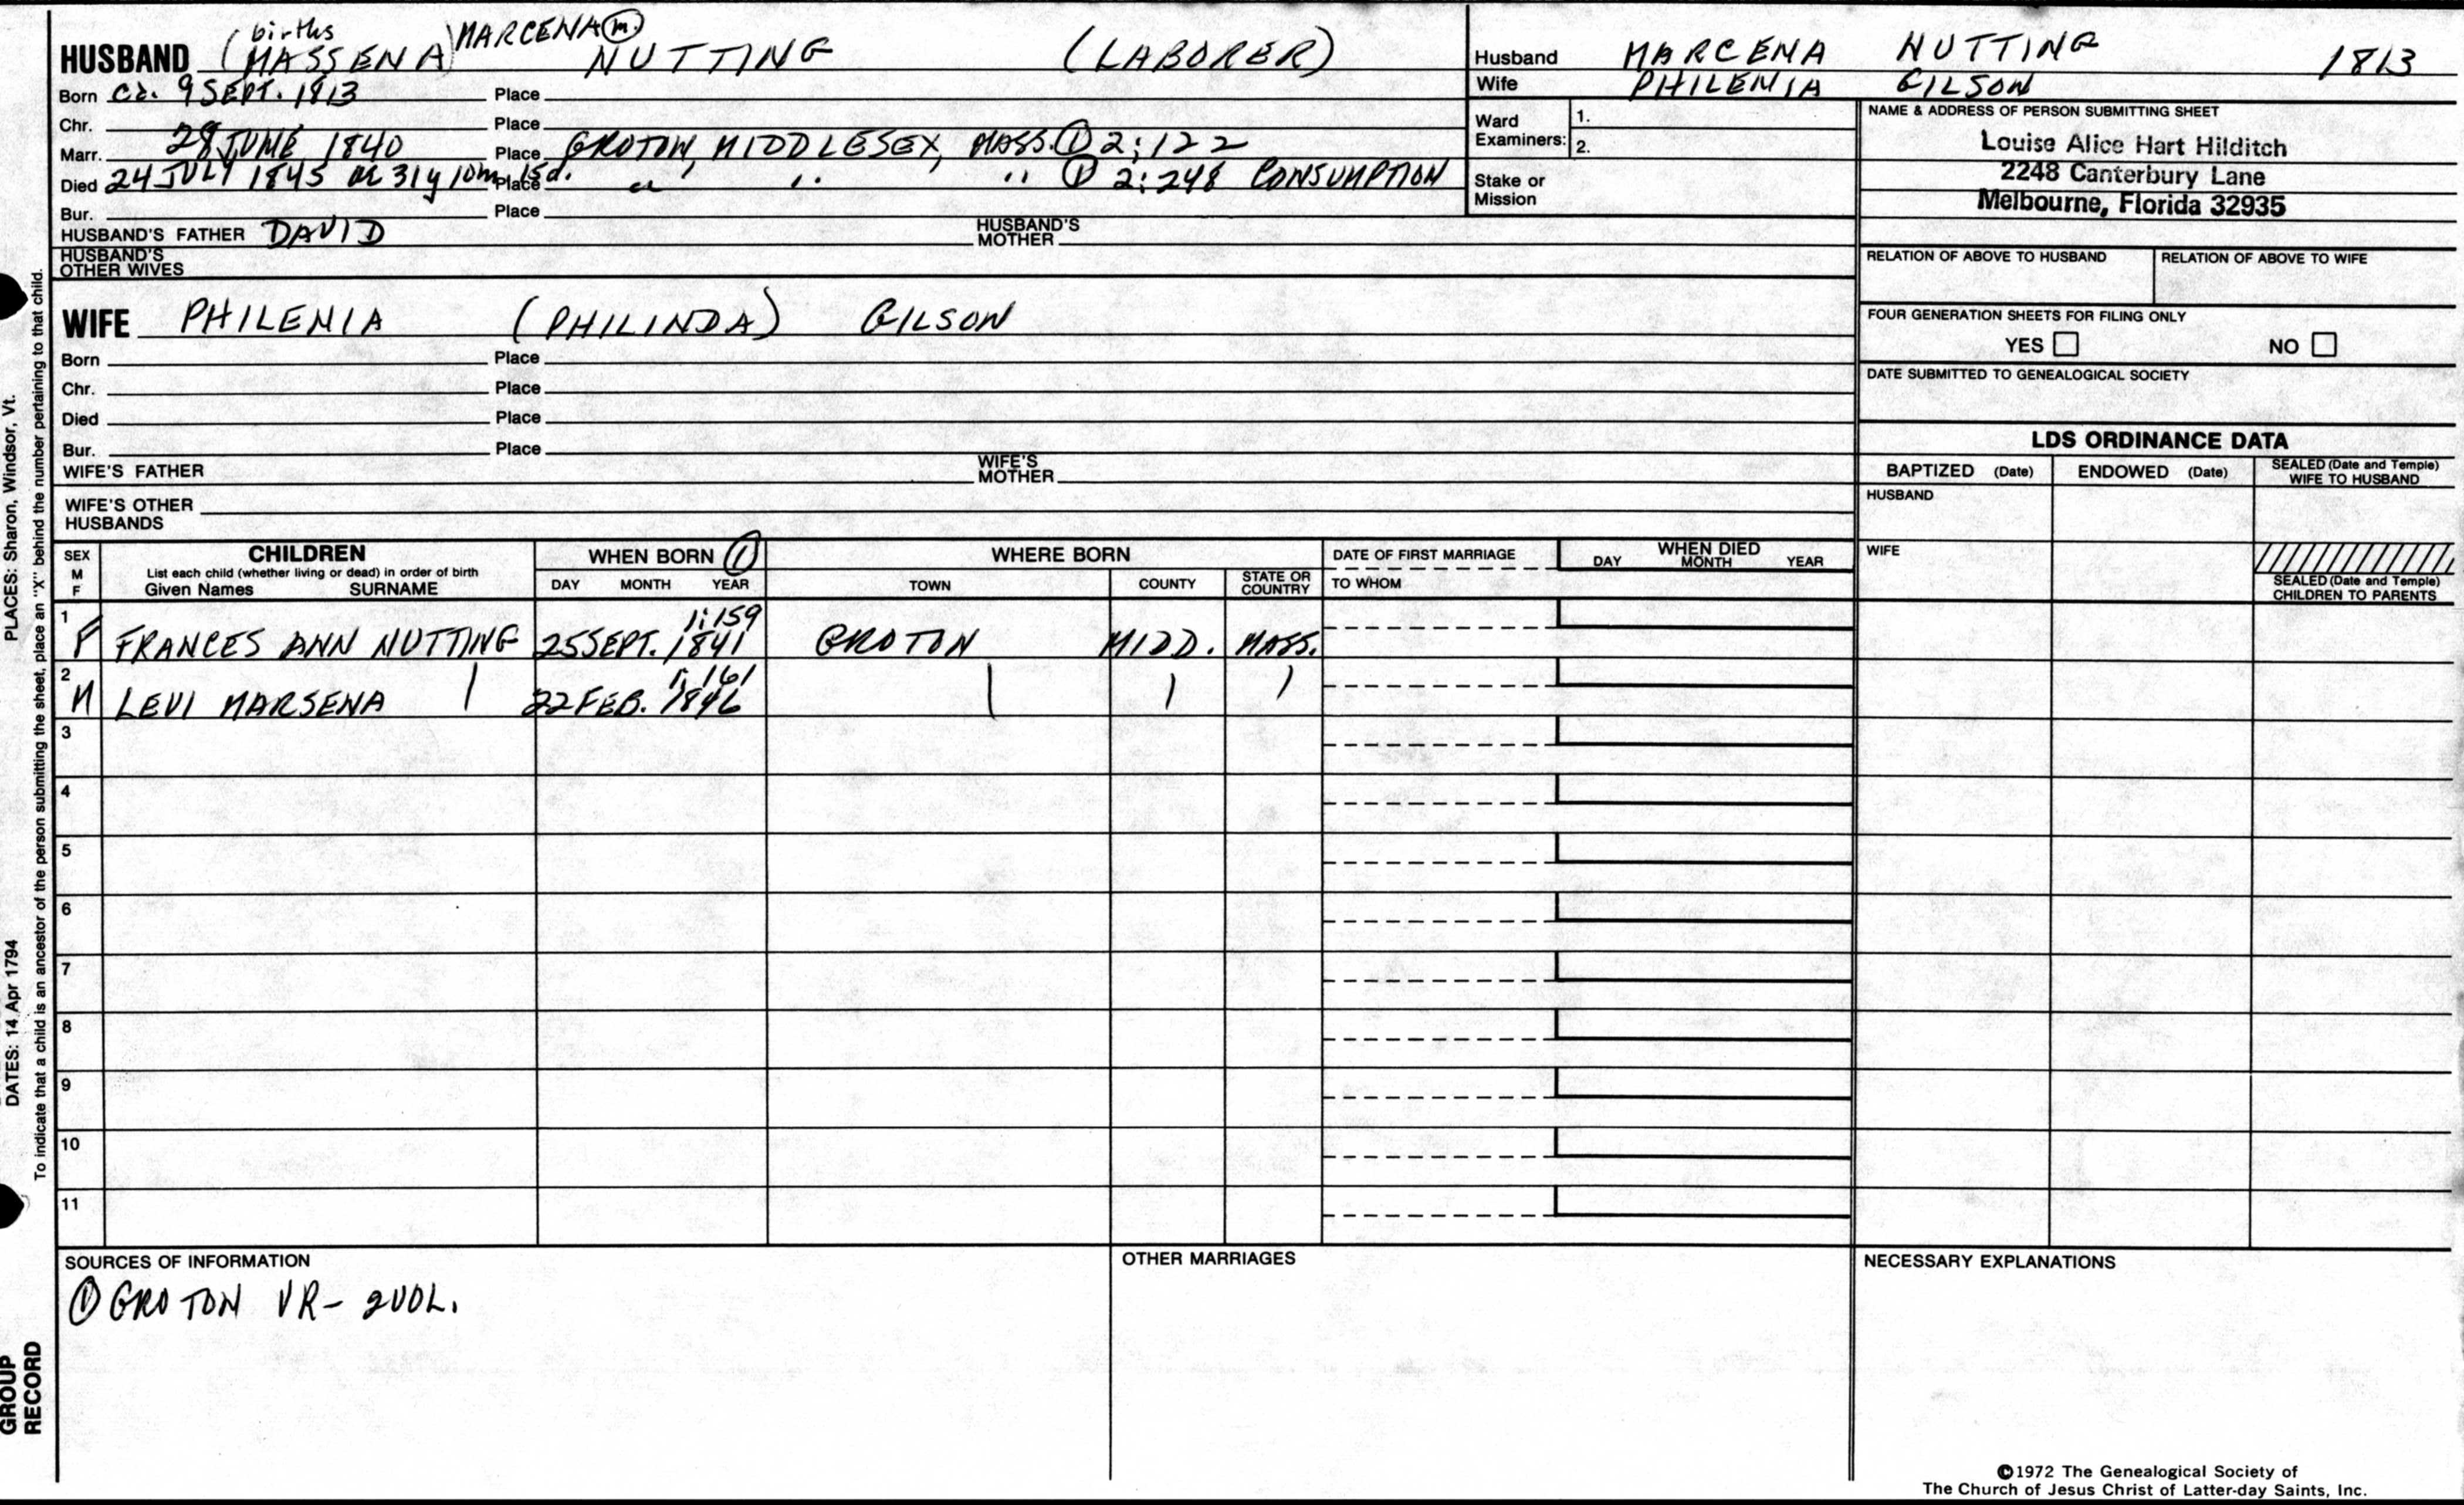 births
HUSBAND (MASSENA) MARCENA (m.) NUTTING (LABORER)
Born Ca. 9 SEPT. 1813 Place
Chr. Place
Marr. 28 JUNE 1840 Place GROTON, MIDDLESEX, MASS. ① 2:122
Died 24 JULY 1845 ae 31y 10m 15d. Place " " " ① 2:248 CONSUMPTION
Bur. Place
HUSBAND'S FATHER DAVID HUSBAND'S MOTHER
HUSBAND'S OTHER WIVES
WIFE PHILENIA (PHILINDA) GILSON
Born Place
Chr. Place
Died Place
Bur. Place
WIFE'S FATHER WIFE'S MOTHER
WIFE'S OTHER HUSBANDS
Husband MARCENA NUTTING 1813
Wife PHILENIA GILSON
Ward Examiners: 1.
2.
Stake or Mission
NAME & ADDRESS OF PERSON SUBMITTING SHEET
Louise Alice Hart Hilditch
2248 Canterbury Lane
Melbourne, Florida 32935
RELATION OF ABOVE TO HUSBAND RELATION OF ABOVE TO WIFE
FOUR GENERATION SHEETS FOR FILING ONLY
YES NO
DATE SUBMITTED TO GENEALOGICAL SOCIETY
LDS ORDINANCE DATA
BAPTIZED (Date) ENDOWED (Date) SEALED (Date and Temple) WIFE TO HUSBAND
HUSBAND
WIFE
SEALED (Date and Temple)
CHILDREN TO PARENTS
SEX M F CHILDREN WHEN BORN ① WHERE BORN DATE OF FIRST MARRIAGE WHEN DIED
List each child (whether living or dead) in order of birth
Given Names SURNAME DAY MONTH YEAR TOWN COUNTY STATE OR COUNTRY TO WHOM DAY MONTH YEAR
1 1:159
F FRANCES ANN NUTTING 25 SEPT. 1841 GROTON MIDD. MASS.
2 1:161
M LEVI MARSENA | 22 FEB. 1846 | | |
3
4
5
6
7
8
9
10
11
SOURCES OF INFORMATION
① GROTON VR- 2VOL.
OTHER MARRIAGES
NECESSARY EXPLANATIONS
©1972 The Genealogical Society of
The Church of Jesus Christ of Latter-day Saints, Inc.
PLACES: Sharon, Windsor, Vt.
DATES: 14 Apr 1794
To indicate that a child is an ancestor of the person submitting the sheet, place an "X" behind the number pertaining to that child.
GROUP
RECORD